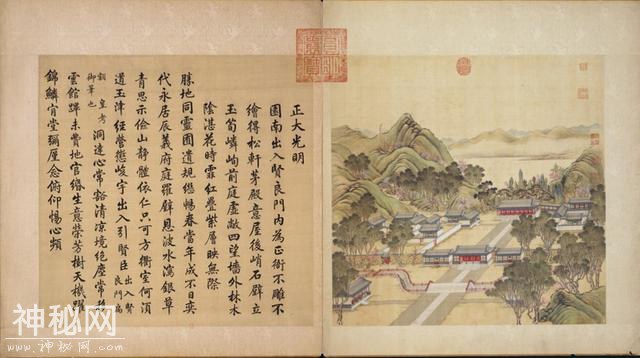 正大光明
園南出入賢良門內為正衙不雕不
繪得松軒茅殿意屋後峭石壁立
玉筍嶙峋前庭虛敞四望墻外林木
陰湛花時霏紅疊紫層映無際
勝地同靈囿遺規繼暢春當年成不日奕
代永居辰義府庭羅璧恩波水瀉銀草
青思示儉山靜體依仁只可方衢室何須
道玉津經營懲峻宇出入引賢臣出入賢良門為
皇考御筆也洞達心常豁清涼境絕塵常移
雲館蹕未費地官緡生意榮芳樹天機躍
錦鱗肯堂彌厪念俯仰惕心頻
神秘网
www.神秘网.com